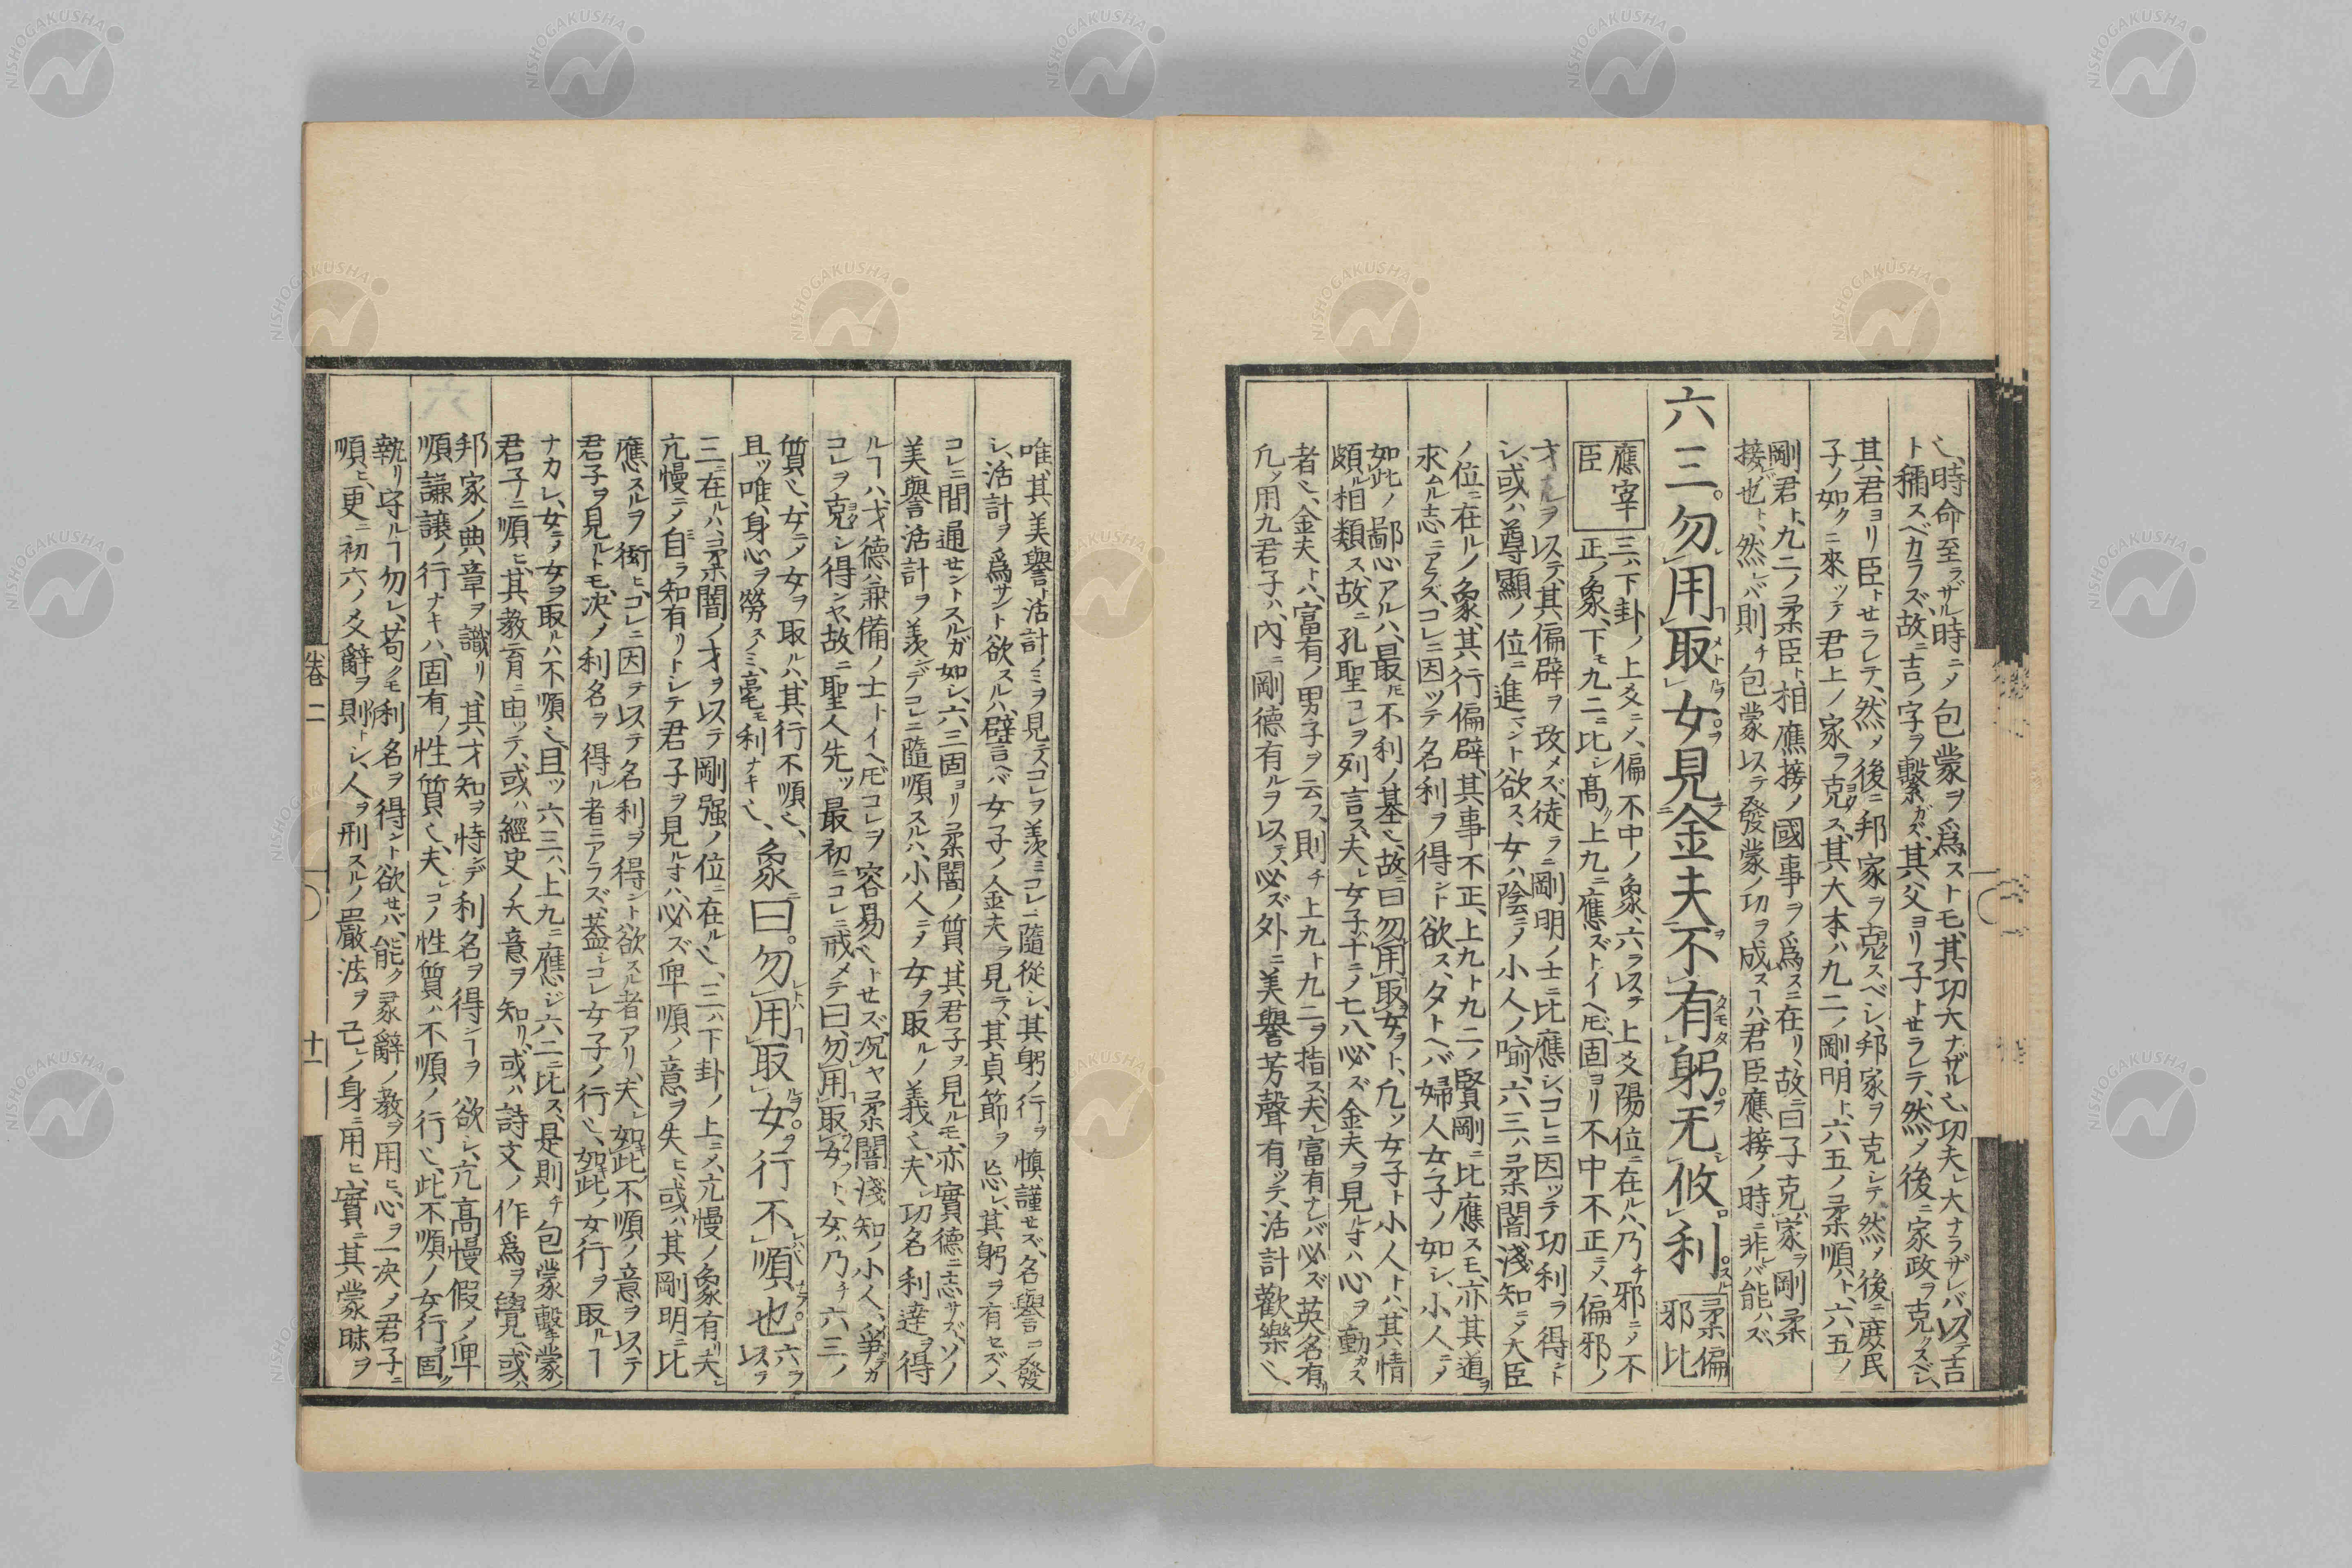 乀、時命至ラザル時ニノ包蒙ヲ爲ストモ、其功大ナザル乀、功夫レ大ナラザレバ、以テ吉
ト稱スベカラズ、故ニ吉ノ字ヲ繫ガズ、其父ヨリ子トセラレテ、然メ後ニ家政ヲ克クスベシ、
其、君ヨリ臣トセラレテ、然メ後ニ邦家ヲ克クスベシ、邦家ヲ克シテ然メ後ニ庶民
子ノ如クニ來ッテ君上ノ家ヲ克ス、其大本ハ九二ノ剛明ト、六五ノ柔順ト、六五ノ
剛君ト、九二ノ柔臣ト、相應接ノ國事ヲ爲スニ在リ、故ニ曰子克家ヲ剛柔
接レバ也ト、然レバ則チ包蒙以テ發蒙ノ功ヲ成スヿハ、君臣應接ノ時ニ非レバ能ハズ
六三。勿用取女。見金夫不有躬。无攸利。
柔偏
邪比
應宰
臣
三ハ下卦ノ上爻ニノ、偏不中ノ象、六ヲ以テ上爻陽位ニ在ルハ、乃チ邪ニノ不
正ノ象、下モ九二ニ比シ高ク上九ニ應ズトイヘ𪜈、固ヨリ不中不正ニメ、偏邪ノ
才ナルヲ以テ、其偏辟ヲ改メズ、徒ラニ剛明ノ士ニ比應シ、コレニ因ッテ功利ヲ得ント
シ、或ハ尊顯ノ位ニ進マント欲ス、女ハ陰ニノ小人ノ喩、六三ハ柔闇淺知ニメ大臣
ノ位ニ在ルノ象、其行偏辟、其事不正、上九ト九二ノ賢剛ニ比應スモ、亦其道ヲ
求ムル志ニアラズ、コレニ因ッテ名利ヲ得ント欲ス、タトヘバ婦人女子ノ如シ、小人ニノ
如此ノ鄙心アルハ、最𪜈不利ノ基乀、故ニ曰勿用取女ヲト、凡ッ女子ト小人トハ、其情
頗ル相類ス、故ニ孔聖コレヲ列言ズ、夫レ女子ハ十ニノ七八、必ズ金夫ヲ見ルオハ心ヲ動カス
者乀、金夫トハ、富有ノ男子ヲ云フ、則チ上九ト九二ヲ指ス、夫レ富有ナレバ必ズ英名有リ
凡ッ用九君子ハ、内ニ剛德有ルヲ以テ、必ズ外ニ美譽芳聲有ッテ、活計歡樂乀、
唯、其美譽ト活計ノミヲ見テコレヲ羨ミコレニ隨從シ、其躬ノ行ヲ愼謹セズ、名譽ニ發
シ、活計ヲ爲サント欲スルハ、辟言ヘバ女子ノ金夫ヲ見テ、其貞節ヲ忘レ、其躬ヲ有セズメ、
コレニ間通セントスルガ如シ、六三固ヨリ柔闇ノ質、其君子ヲ見ルモ、亦實德ニ志サズ、ソノ
美譽活計ヲ羨ンデコレニ隨順スルハ、小人ニメ女ヲ取ルノ義乀、夫レ功名利達ヲ得
ルヿハ、才德ハ兼備ノ士トイヘ𪜈コレヲ容易乀トセズ、况ヤ柔闇淺知ノ小人、爭デカ
コレヲ克シ得ンヤ、故ニ聖人先ッ最初ニコレニ戒メテ曰、勿用取女ヲト、女ハ乃チ六三ノ
質乀、女ニノ女ヲ取ルハ、其行不順乀、
且ッ唯、身心ヲ勞スノミ、毫モ利ナキ乀、
象曰。勿用取女。行不順也。
六ヲ
以テ
三ニ在ルハ、柔闇ノ才ヲ以テ剛强ノ位ニ在ル乀、三ハ下卦ノ上ニメ、亢慢ノ象有リ夫レ
亢慢ニノ自ラ知有リトシテ君子ヲ見ルオハ、必ズ卑順ノ意ヲ失ヒ、或ハ其剛明ニ比
應スルヲ衒ヒ、コレニ因テ以テ名利ヲ得ント欲スル者アリ、夫レ如此不順ノ意ヲ以テ
君子ヲ見ルトモ、决ノ利名ヲ得ル者ニアラズ、蓋シコレ女子ノ行乀、如此ノ女行ヲ取ルヿ
ナカレ、女ニノ女ヲ取ルハ不順乀、且ッ六三ハ、上九ニ應ジ六二ニ比ス、是則チ包蒙擊蒙ノ
君子ニ順ヒ、其教育ニ由ッテ、或ハ經史ノ大意ヲ知リ、或ハ詩文ノ作爲ヲ覺ヘ、或ハ
邦家ノ典章ヲ識リ、其才知ヲ恃ンデ利名ヲ得ンヿヲ欲シ、亢高慢假ノ卑
順謙讓ノ行ナキハ、固有ノ性質乀、夫レコノ性質ハ不順ノ行乀、此不順ノ女行ヲ固ク
執リ守ルヿ勿レ、苟クモ利名ヲ得ント欲セバ、能ク彖辭ノ教ヲ用ヒ、心ヲ一决ノ君子ニ
順ヒ、更ニ初六ノ爻辭ヲ則トシ、人ヲ刑スルノ嚴法ヲ己レノ身ニ用ヒ、實ニ其蒙昧ヲ
卷二
十一